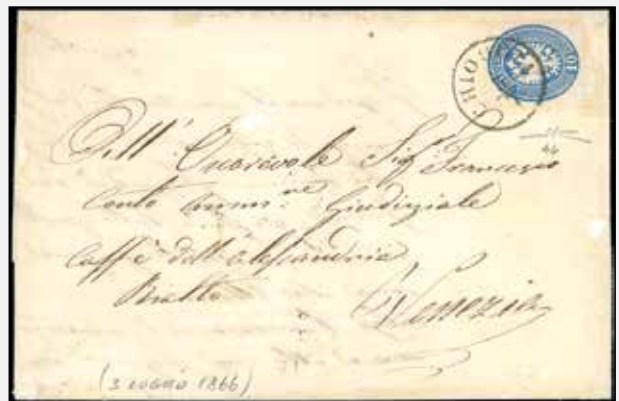 10
CHIOG
All' Onorevole Sigr Francesco
Conte Comm.re Giudiziale
Caffè dell'Alessandria
Rialto
Venezia
(3 LUGLIO 1866)